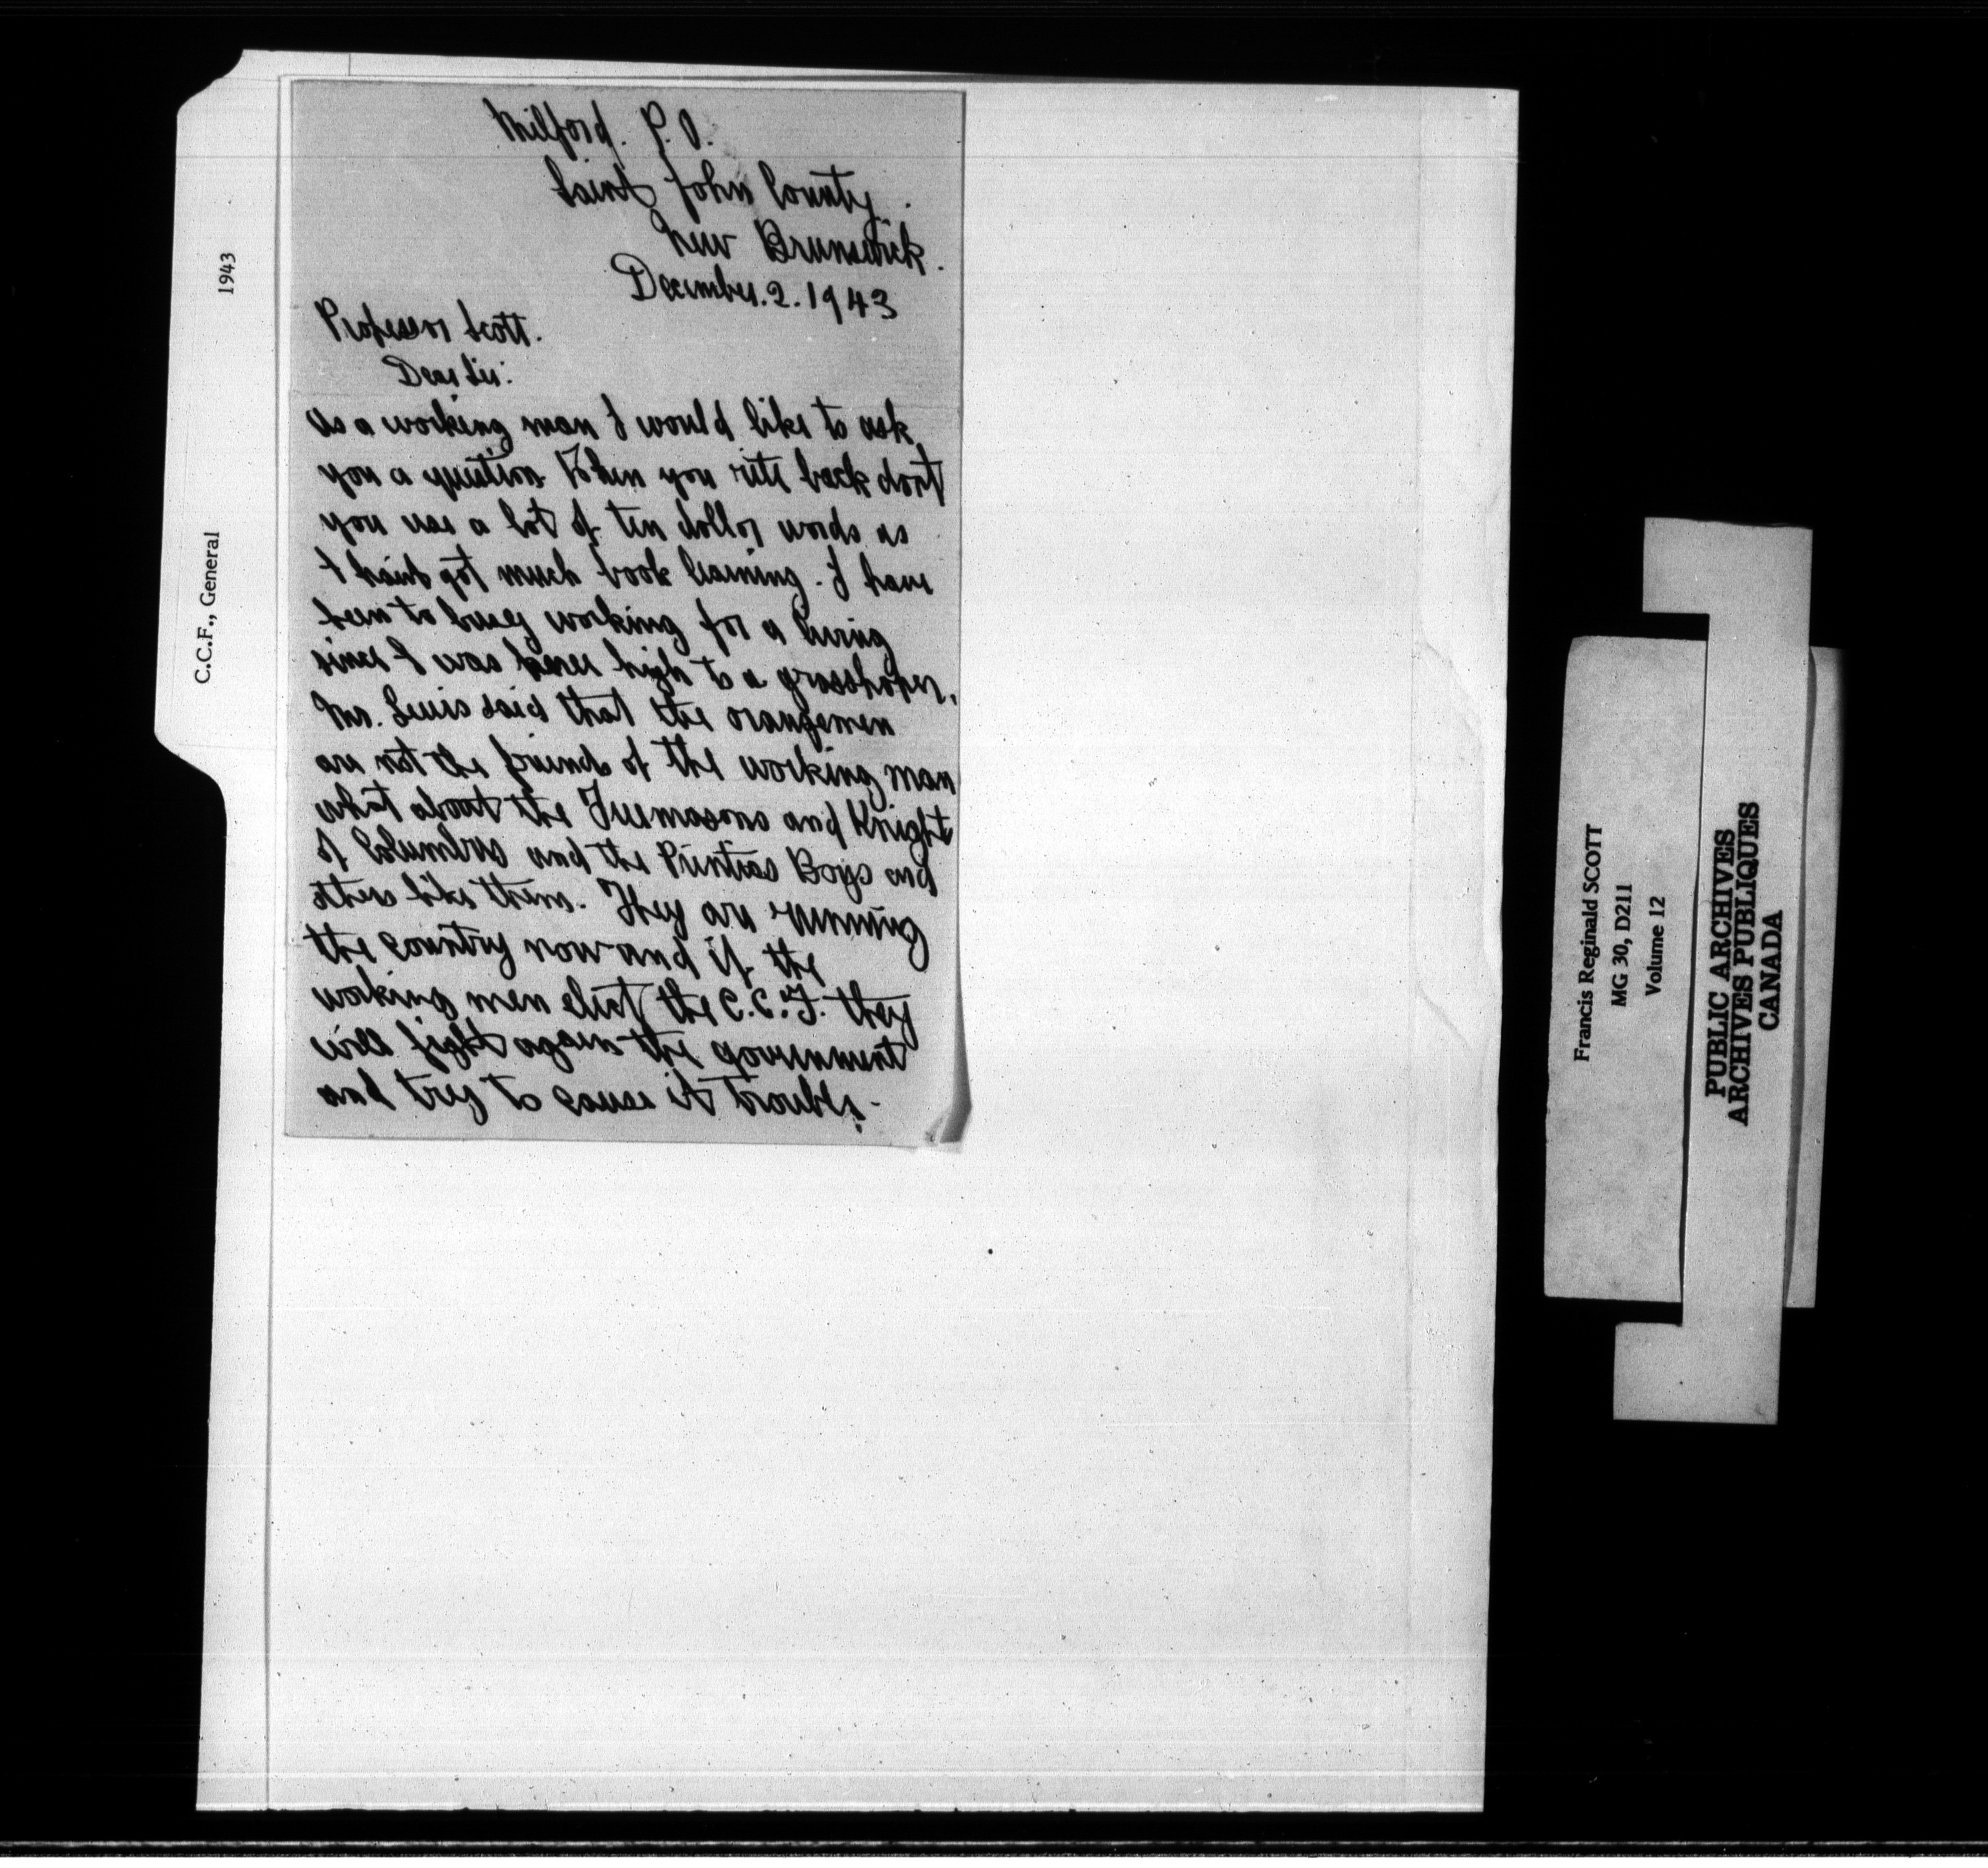 Milford. P.O.
Saint John County.
New Brunswick.
December.2.1943
Professor Scott.
Dear Sir:
As a working man I would like to ask
you a question When you rite back dont
you use a lot of ten dollor words as
I haint got much book learning. I have
been to busy working for a living
since I was knee high to a grasshoper.
Mr. Lewis said that the orangemen
are not the friends of the working man
what about the Freemasons and Knights
of Columbus and the Printias Boys and
others like them. They are running
the country now and if the
working men elect the C.C.F. they
will fight agains the government
and trey to cause it trouble.
1943
C.C.F., General
Francis Reginald SCOTT
MG 30, D211
Volume 12
PUBLIC ARCHIVES
ARCHIVES PUBLIQUES
CANADA